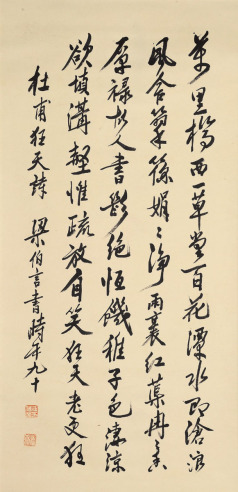 萬里橋西一草堂百花潭水即滄浪
風含翠篠娟〻淨雨裛紅蕖冉〻香
厚祿故人書斷絕恆饑稚子色淒涼
欲填溝壑惟疏放自笑狂夫老更狂
杜甫狂夫詩 梁伯言書時年九十